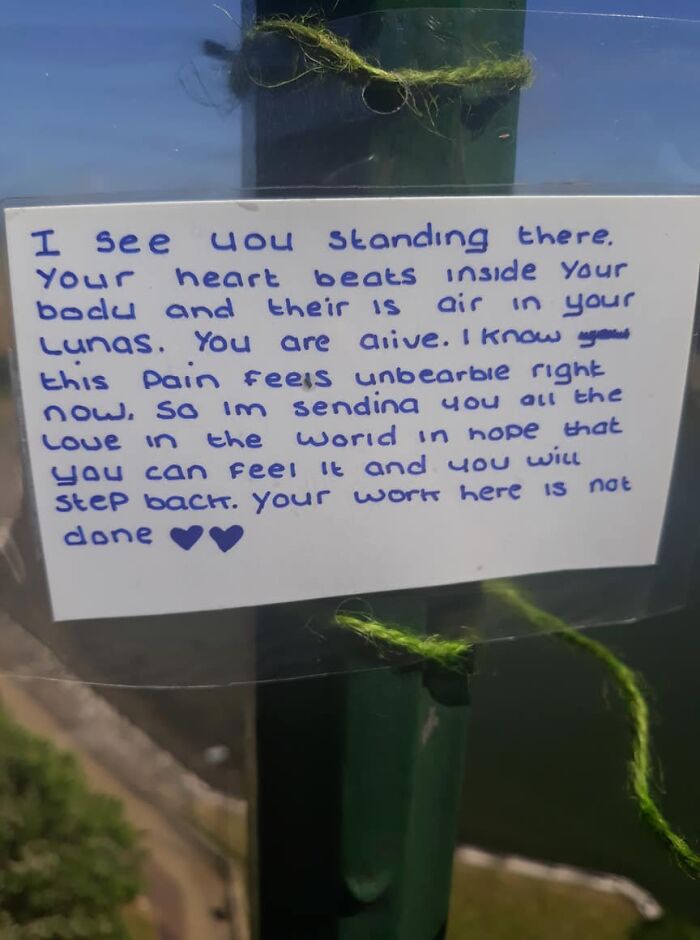 I see you standing there.
Your heart beats inside your
body and their is air in your
Lungs. You are alive. I know
this pain feels unbearble right
now. So im sending you all the
love in the world in hope that
you can feel it and you will
step back. Your work here is not
done ♥♥